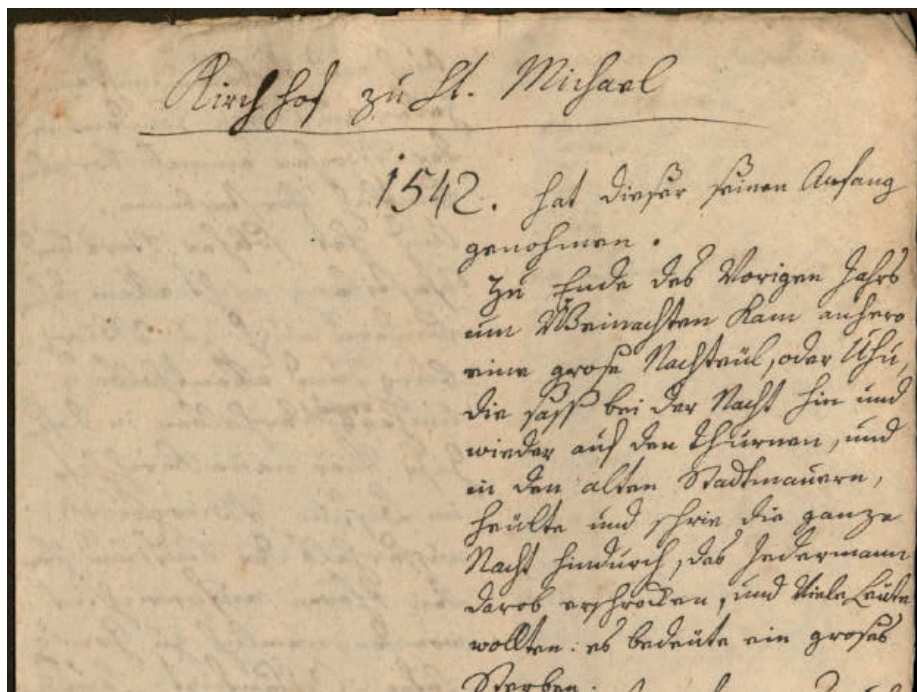 Kirchhof zu St. Michael
1542. hat dieser seinen Anfang
genohmen.
Zu Ende des Vorigen Jahrs
um Weinachten kam anhero
eine grose Nachteül, oder Uhu,
die sass bei der Nacht hin und
wieder auf den Thürnen, und
in den alten Stadtmauern,
heülte und schrie die ganze
Nacht hindurch, das Jedermann
darob erschrocken, und Viele Leüte
wollten: es bedeüte ein groses
Sterben.